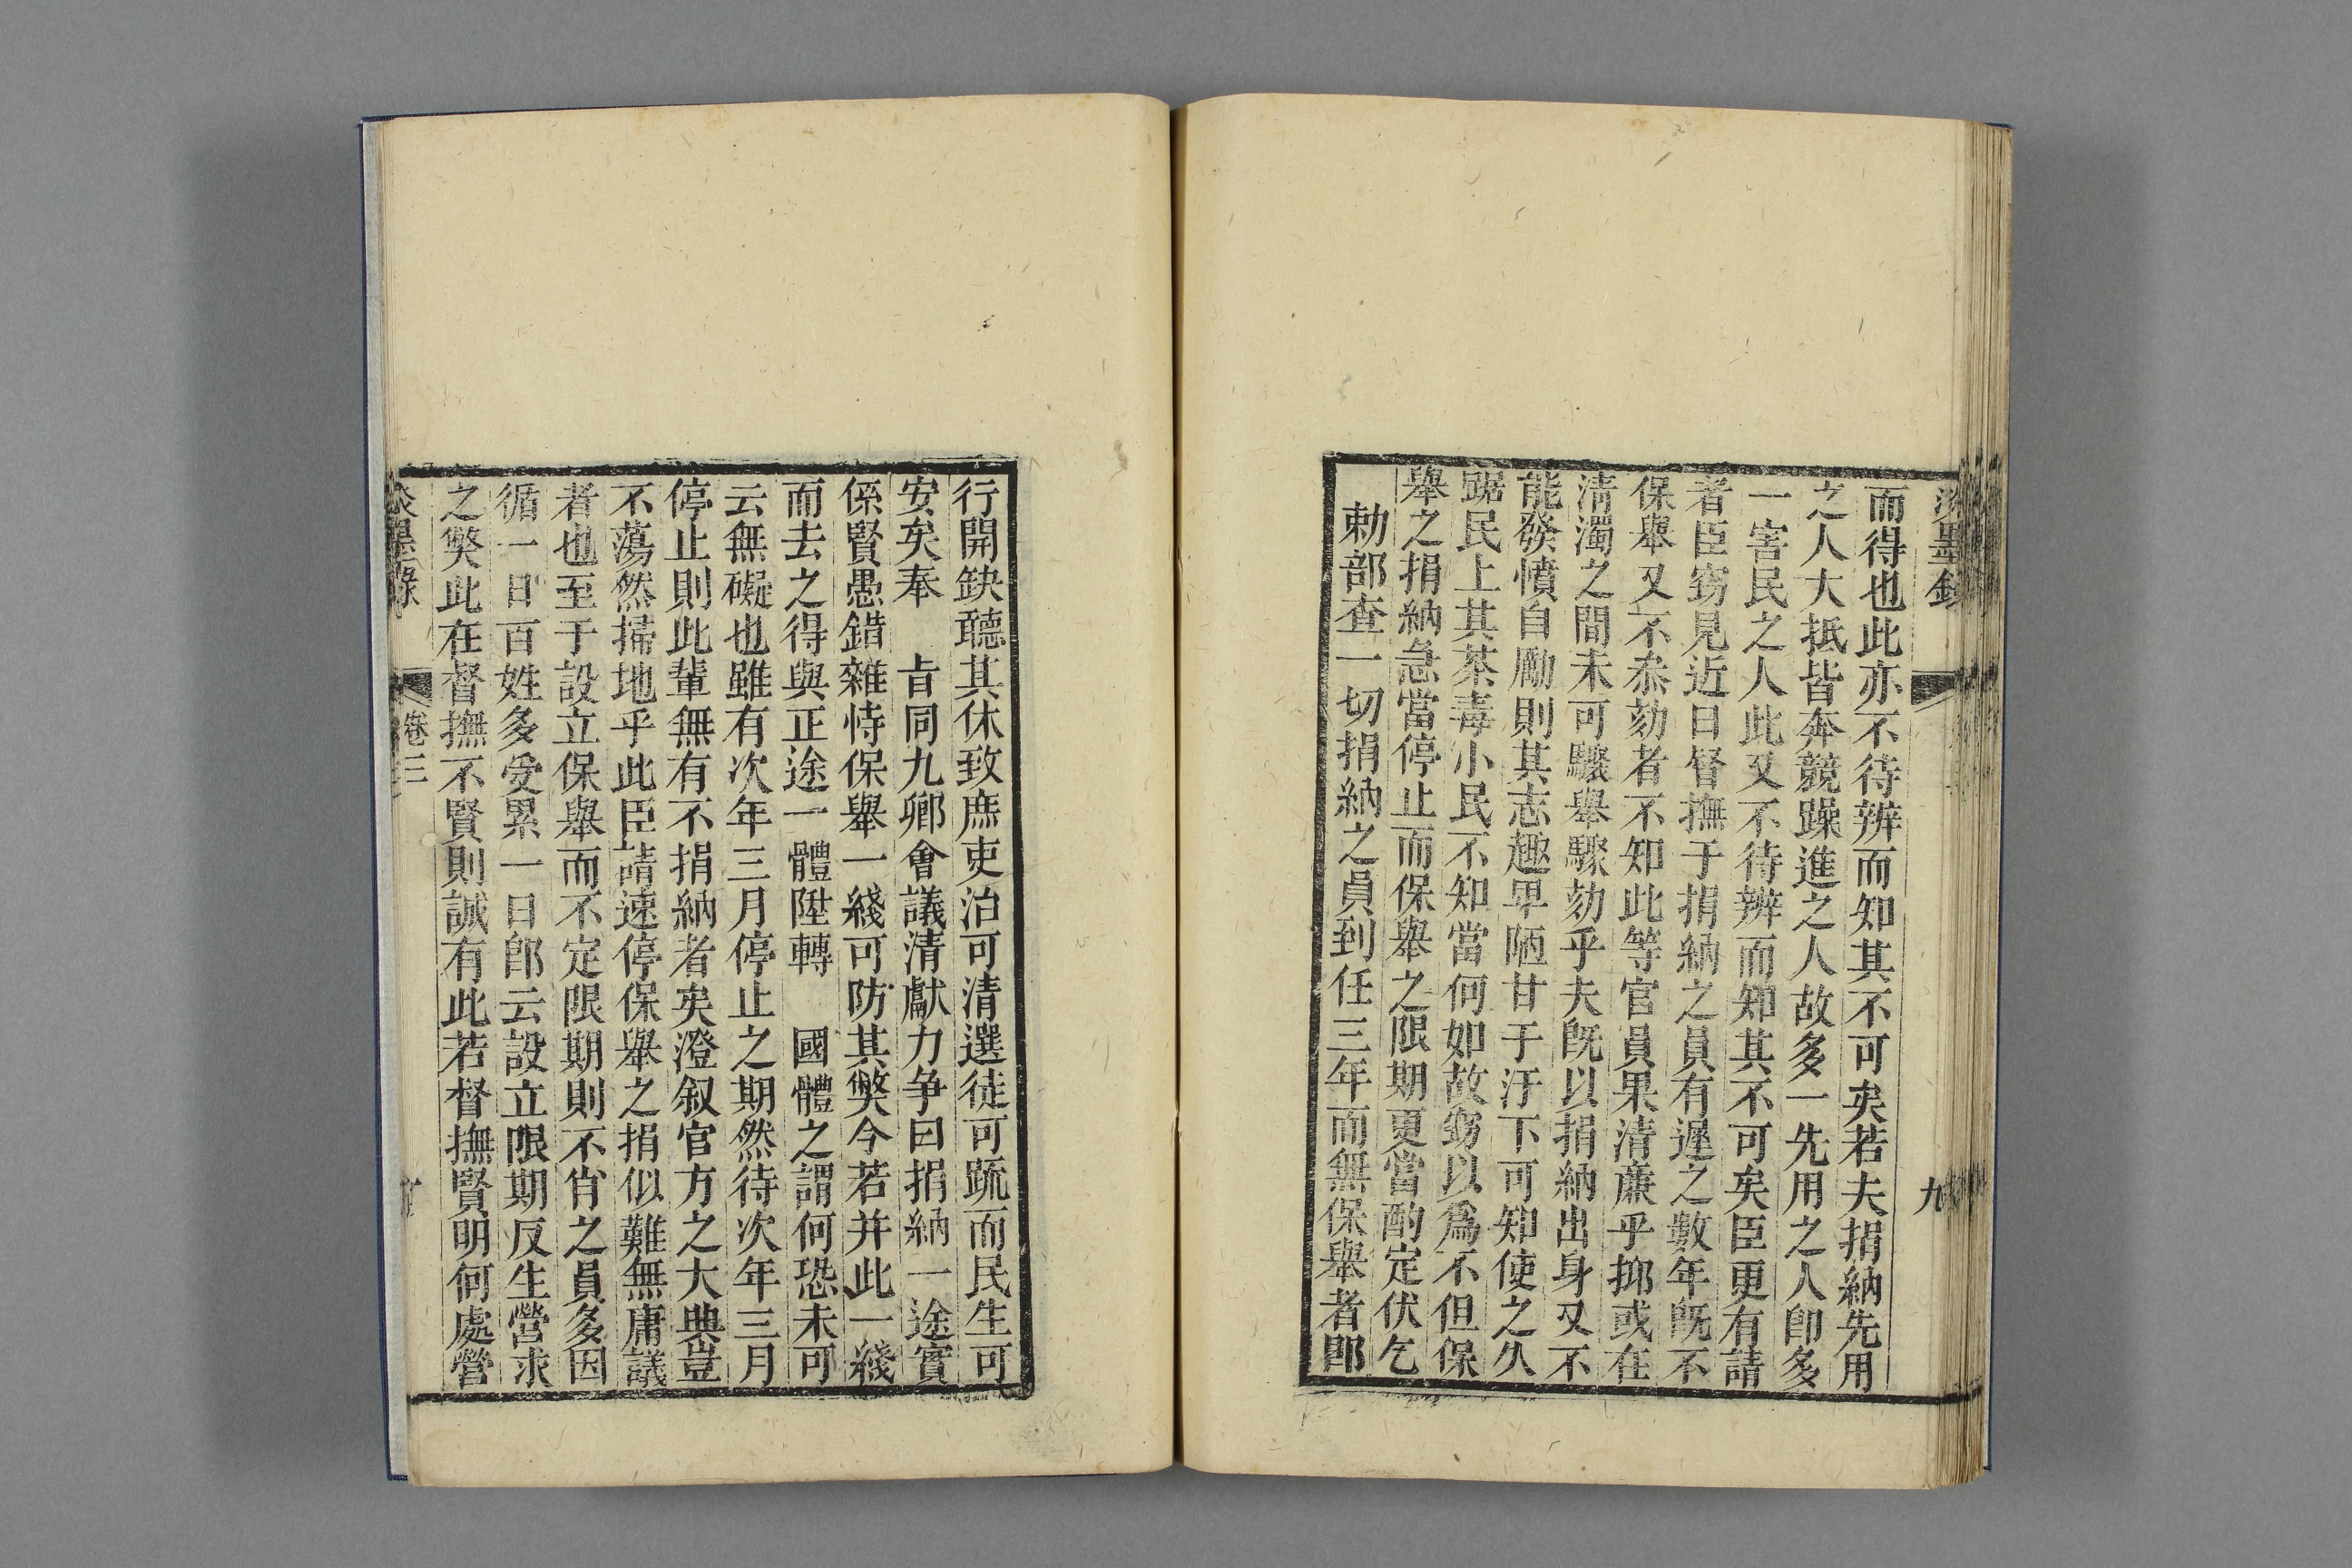 淡墨錄
九
而得也此亦不待辨而知其不可矣若夫捐納先用
之人大抵皆奔競躁進之人故多一先用之人卽多
一害民之人此又不待辨而知其不可矣臣更有請
者臣竊見近日督撫于捐納之員有遲之數年旣不
保舉又不叅劾者不知此等官員果清廉乎抑或在
清濁之間未可驟舉驟劾乎夫旣以捐納出身又不
能發憤自勵則其志趣卑陋甘于汙下可知使之久
踞民上其荼毒小民不知當何如故竊以爲不但保
舉之捐納急當停止而保舉之限期更當酌定伏乞
勅部查一切捐納之員到任三年而無保舉者卽
行開缺聽其休致庶吏治可清選徒可疏而民生可
安矣奉　旨同九卿會議清獻力争曰捐納一途實
係賢愚錯雜恃保舉一綫可防其獘今若并此一綫
而去之得與正途一體陞轉　國體之謂何恐未可
云無礙也雖有次年三月停止之期然待次年三月
停止則此輩無有不捐納者矣澄叙官方之大典豈
不蕩然掃地乎此臣請速停保舉之捐似難無庸議
者也至于設立保舉而不定限期則不肖之員多因
循一日百姓多受累一日卽云設立限期反生營求
之獘此在督撫不賢則誠有此若督撫賢明何處營
淡墨錄
卷三